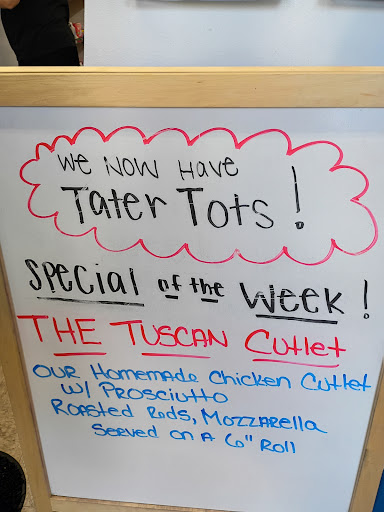 We Now Have
Tater Tots!
Special of the Week!
THE TUSCAN Cutlet
OUR Homemade Chicken Cutlet
w/ Prosciutto
Roasted Reds, Mozzarella
Served on A 6" Roll